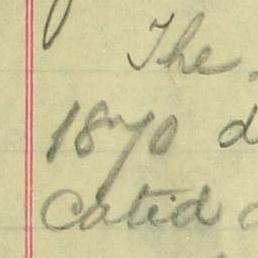 The
1870 d
cated